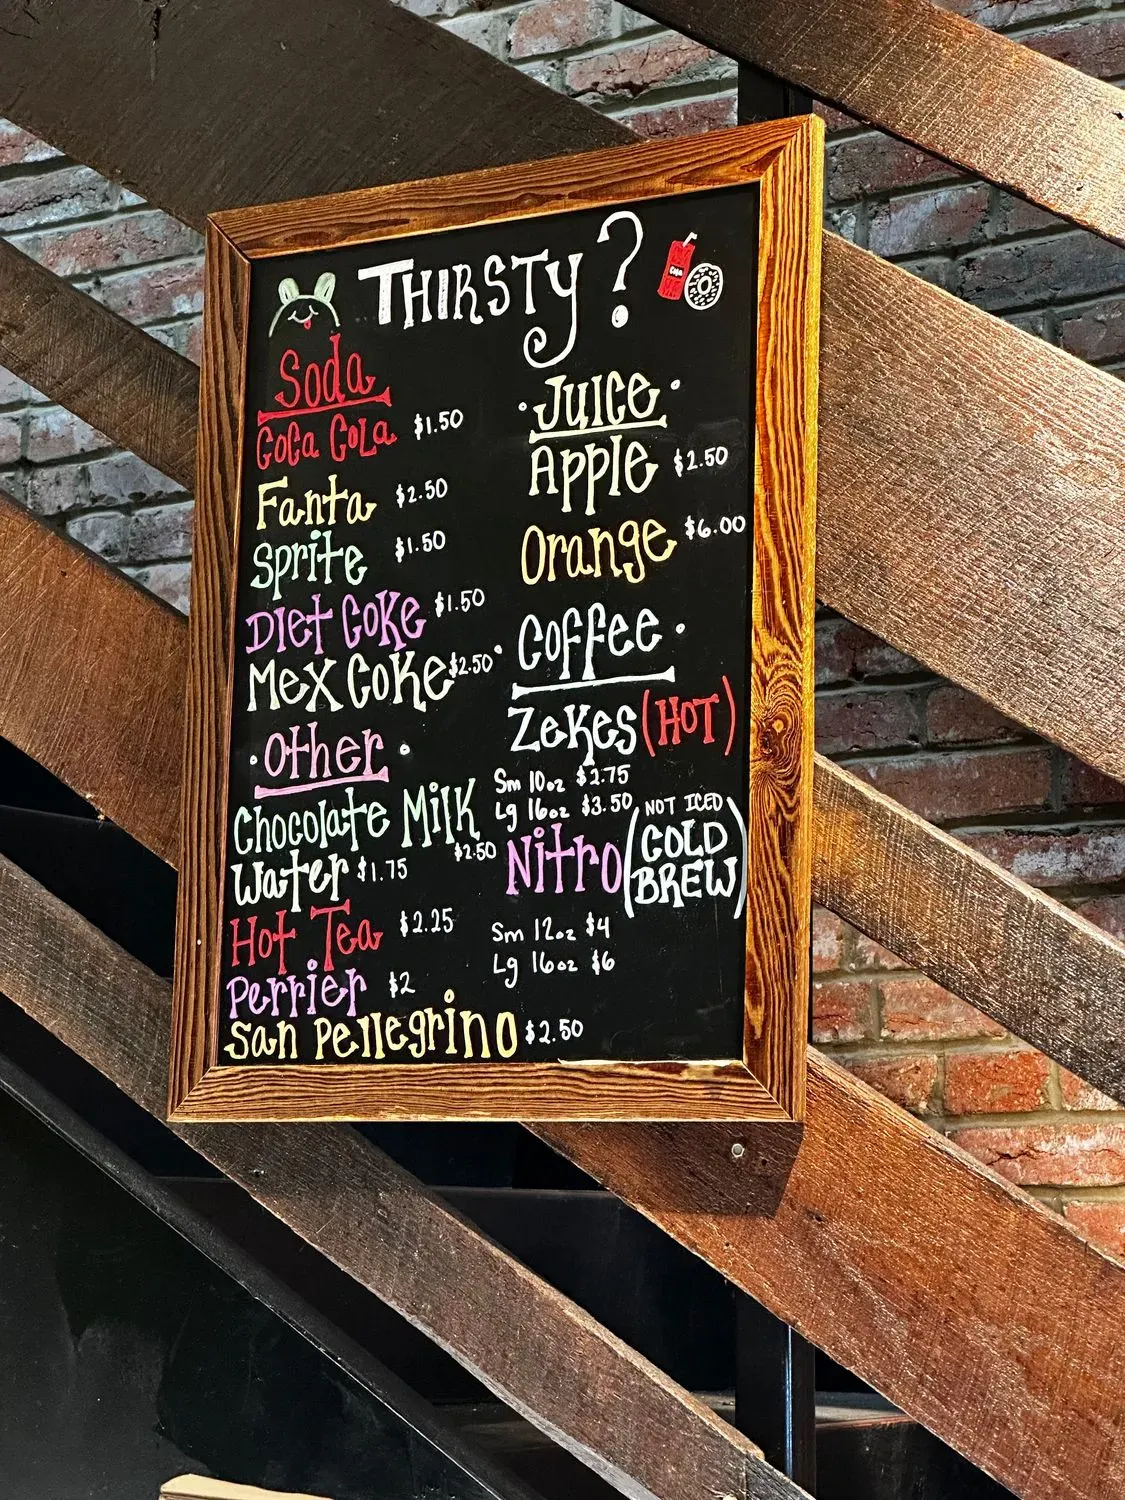 THIRSTY?
Soda
Coca Cola $1.50
Fanta $2.50
Sprite $1.50
Diet Coke $1.50
Mex Coke $2.50
Other
Chocolate Milk $2.50
Water $1.75
Hot Tea $2.25
Perrier $2
San Pellegrino $2.50
Juice
Apple $2.50
Orange $6.00
Coffee
Zekes (HOT)
Sm 10oz $2.75
Lg 16oz $3.50
Nitro (NOT ICED
COLD
BREW)
Sm 12oz $4
Lg 16oz $6